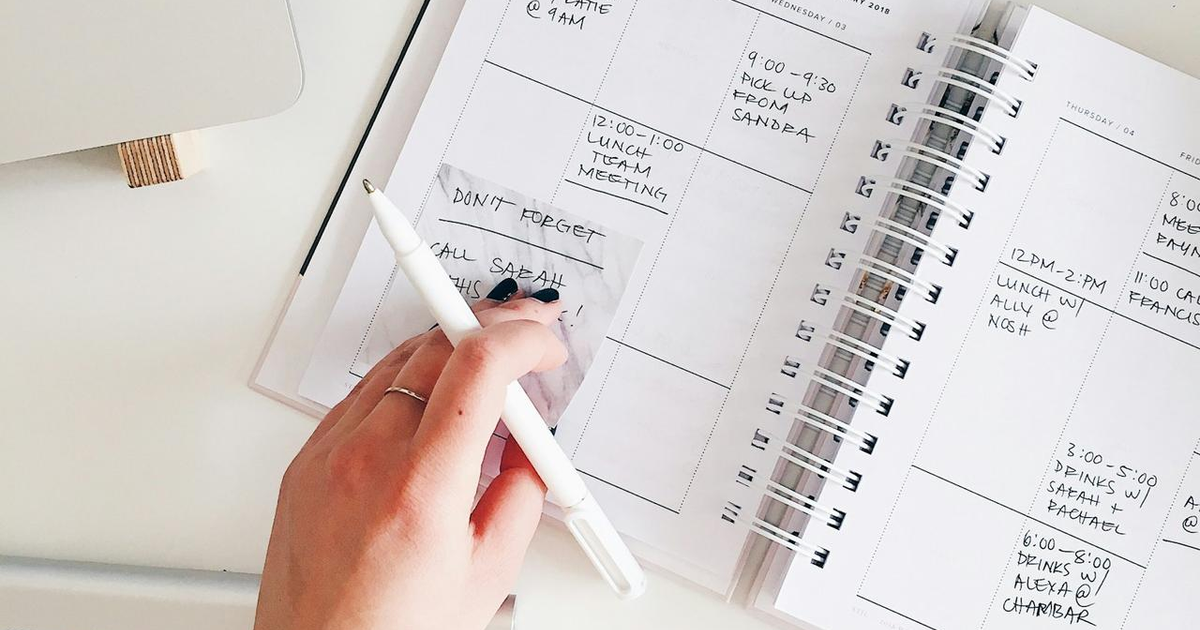 @ 9AM
2018
WEDNESDAY / 03
9:00 - 9:30
PICK UP
FROM
SANDRA
12:00-1:00
LUNCH
TEAM
MEETING
DON'T FORGET
CALL SARAH
!
THURSDAY / 04
12PM-2:PM
LUNCH W/
ALLY @
NOSH
11:00
3:00-5:00
DRINKS W/
SARAH +
RACHAEL
6:00-8:00
DRINKS W/
ALEXA @
CHAMBAR
@